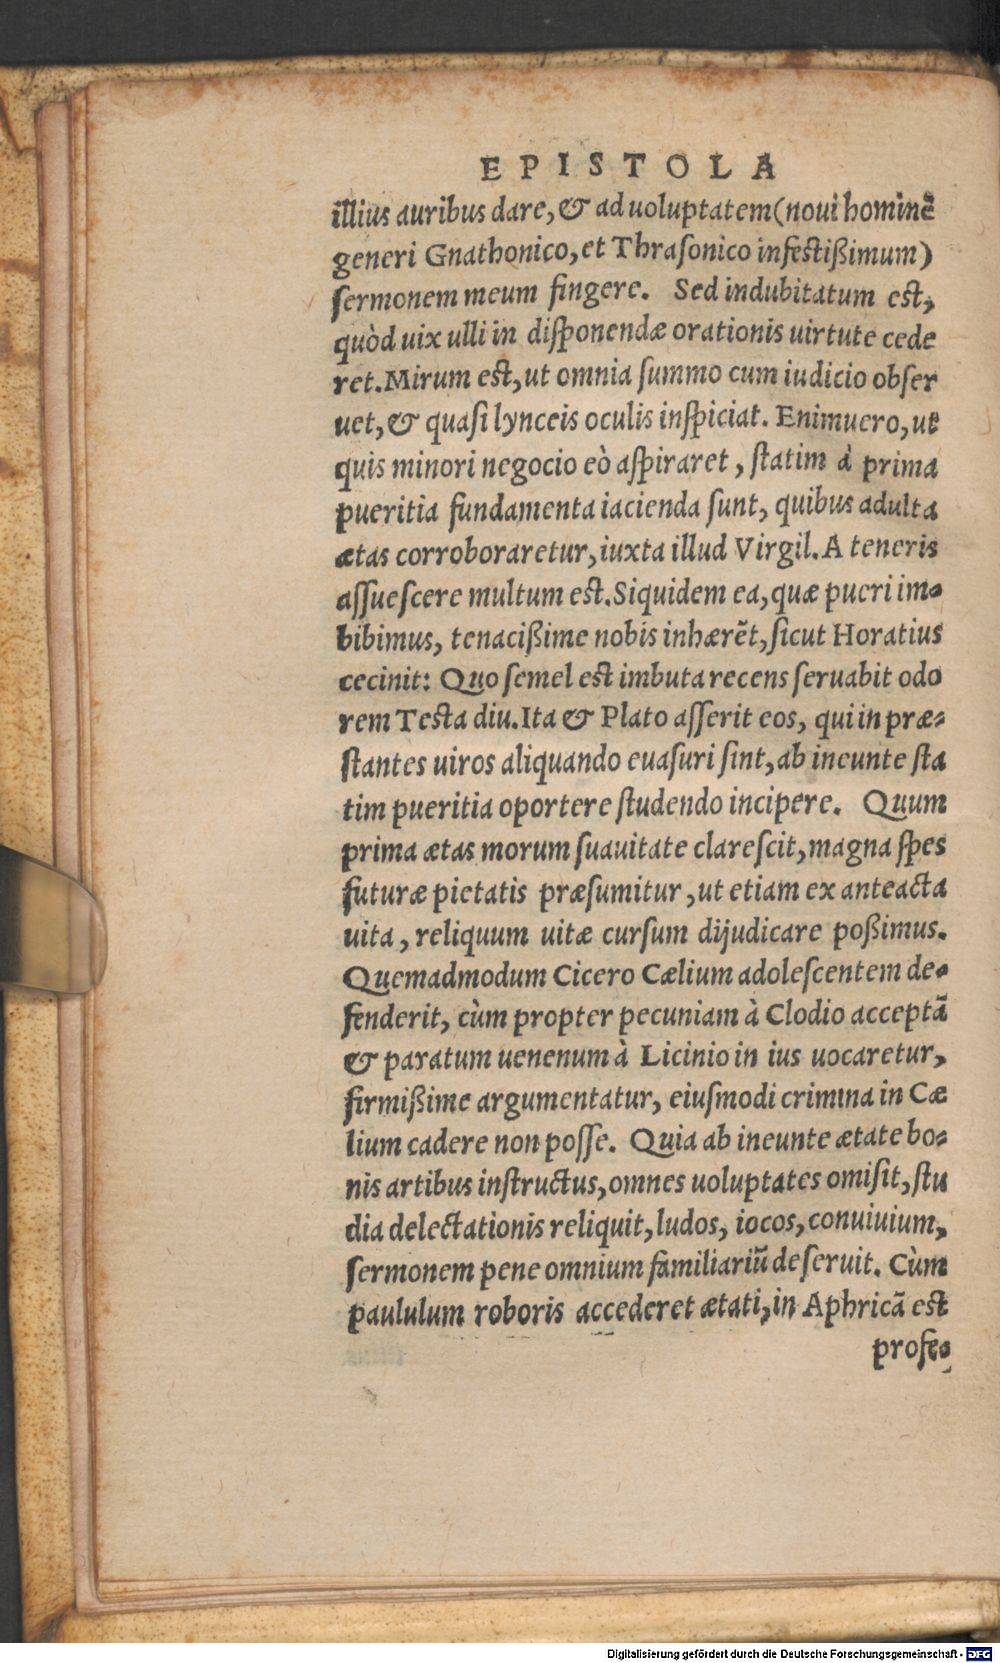 EPISTOLA
illius auribus dare, & ad uoluptatem (noui hominẽ
generi Gnathonico, et Thrasonico infestißimum)
sermonem meum fingere. Sed indubitatum est,
quòd uix ulli in disponendæ orationis uirtute cede
ret. Mirum est, ut omnia summo cum iudicio obser
uet, & quasi lynceis oculis inspiciat. Enimuero, ut
quis minori negocio eò aspiraret, statim à prima
pueritia fundamenta iacienda sunt, quibus adulta
ætas corroboraretur, iuxta illud Virgil. A teneris
assuescere multum est. Siquidem ea, quæ pueri im-
bibimus, tenacißime nobis inhærẽt, sicut Horatius
cecinit: Quo semel est imbuta recens seruabit odo
rem Testa diu. Ita & Plato asserit eos, qui in præ-
stantes uiros aliquando euasuri sint, ab ineunte sta
tim pueritia oportere studendo incipere. Quum
prima ætas morum suauitate clarescit, magna spes
futuræ pietatis præsumitur, ut etiam ex anteacta
uita, reliquum uitæ cursum dijudicare poßimus.
Quemadmodum Cicero Cælium adolescentem de-
fenderit, cùm propter pecuniam à Clodio acceptã
& paratum uenenum à Licinio in ius uocaretur,
firmißime argumentatur, eiusmodi crimina in Cæ
lium cadere non posse. Quia ab ineunte ætate bo-
nis artibus instructus, omnes uoluptates omisit, stu
dia delectationis reliquit, ludos, iocos, conuiuium,
sermonem pene omnium familiariũ deseruit. Cùm
paululum roboris accederet ætati, in Aphricã est
profe-
Digitalisierung gefördert durch die Deutsche Forschungsgemeinschaft - DFG